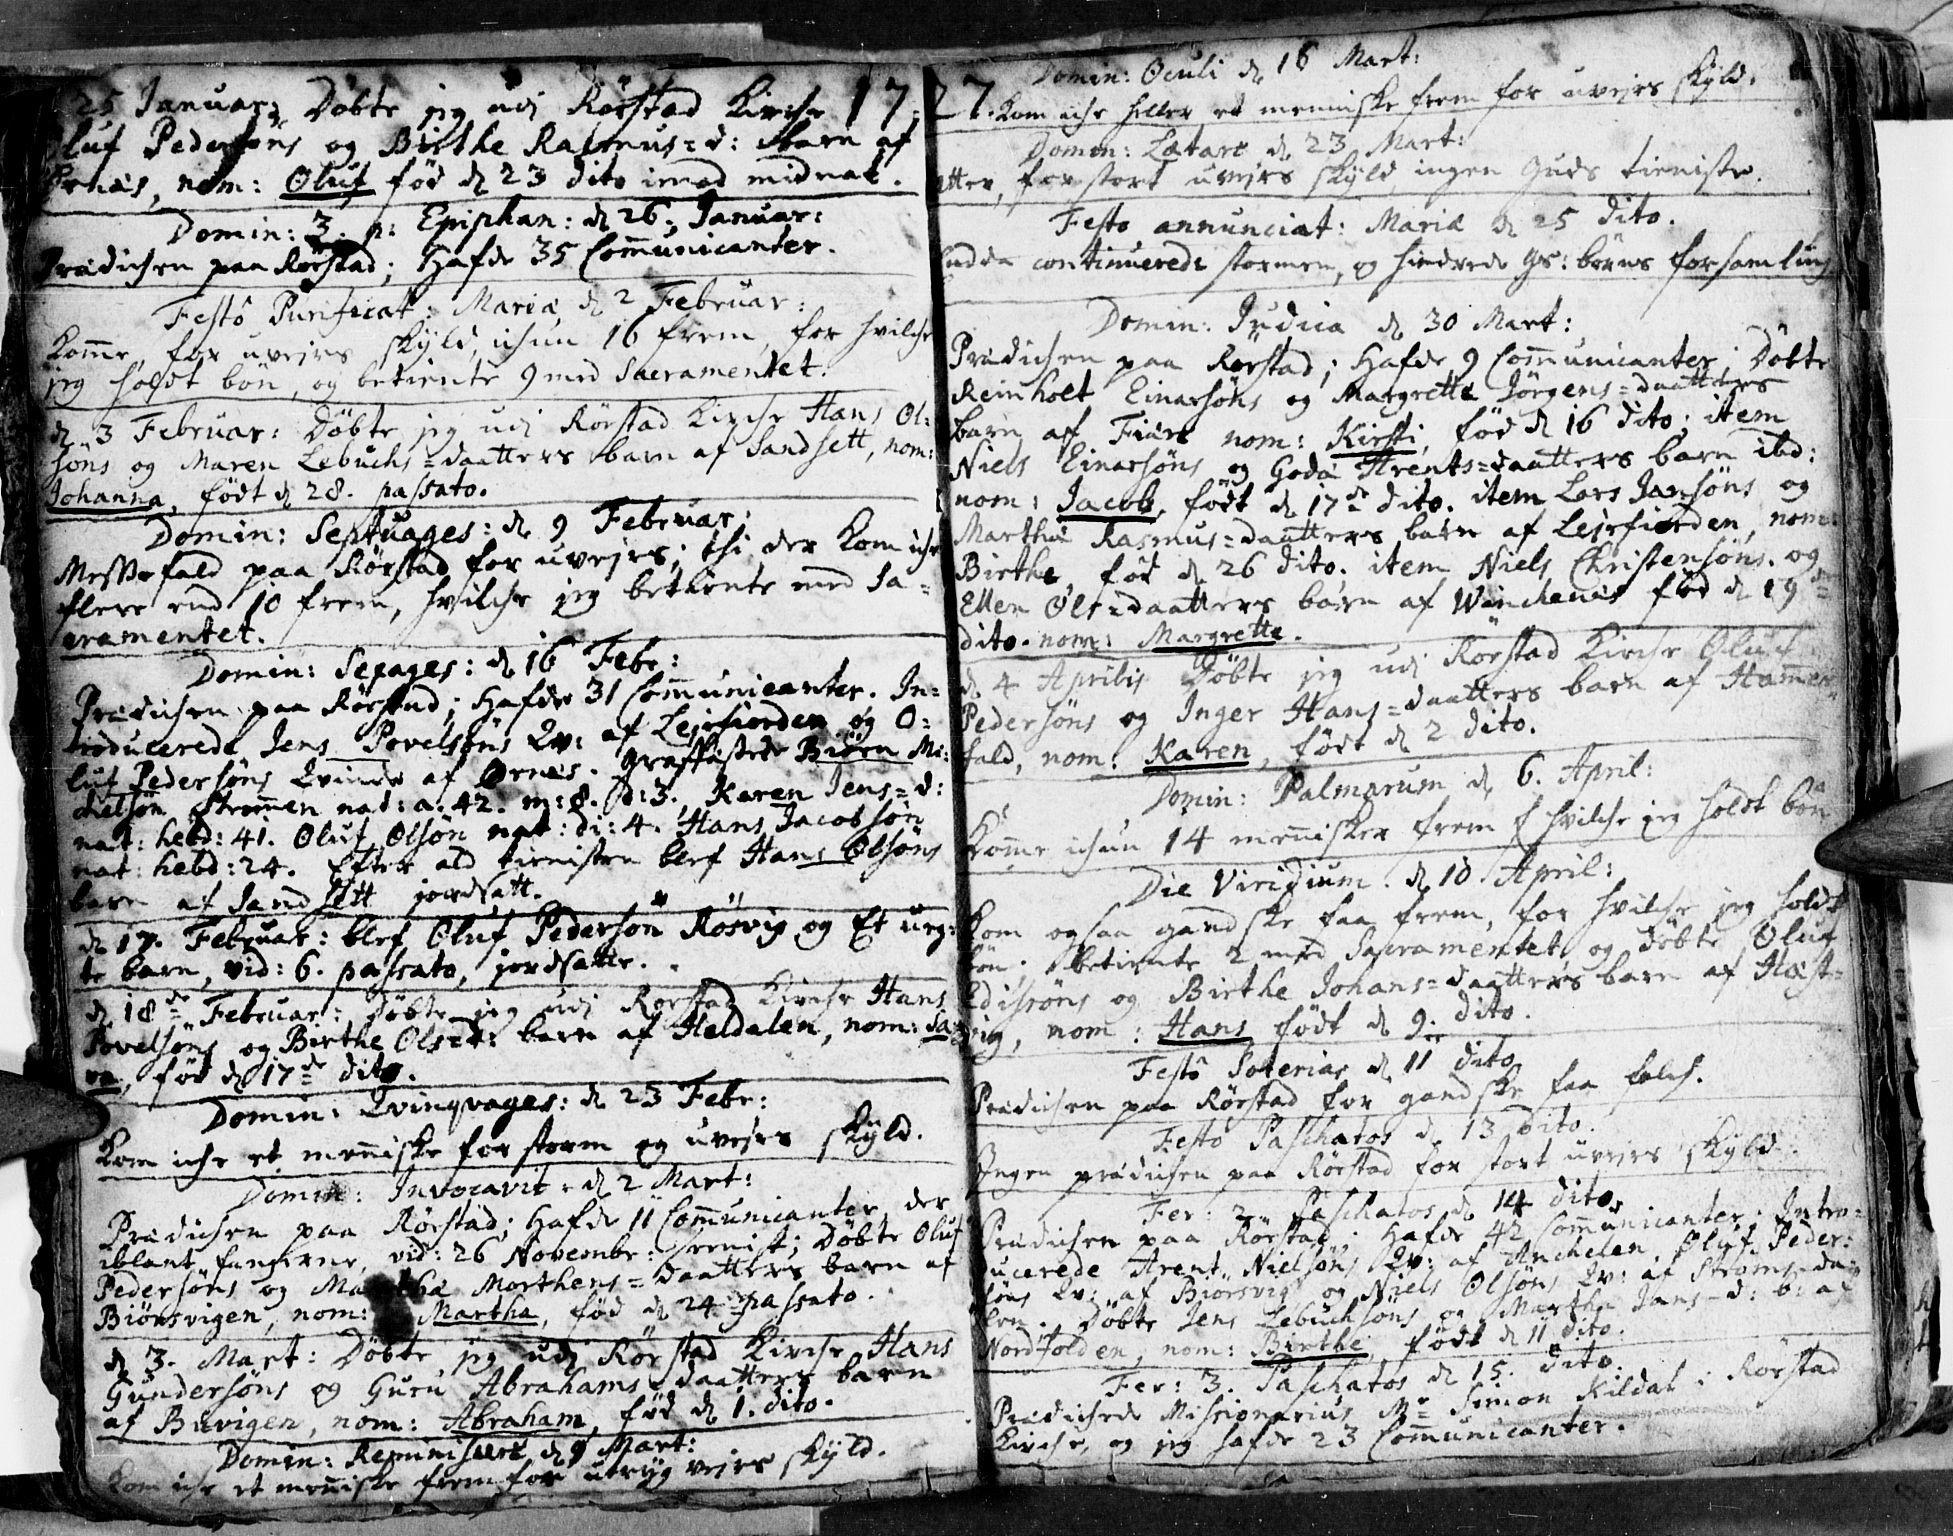 25 Januar: Döbte jeg udj Rörstad Kirche 17
Oluf Pedersöns og Birthe Rasmus=d: barn af
Ornæs, nom: Oluf, föd d 23 dito imod midnat.
Domin: 3. p: Epiphan: d 26. Januar:
Prædichen paa Rörstad; Hafde 35 Communicanter.
Festô Purificat: Mariæ d 2 Februar:
Komme, for uvejrs skÿld, ichun 16 frem, for hvilche
jeg holdt bön, og betiente 9 med Sacramentet.
d. 3 Februar: Döbte jeg udj Rörstad Kirche Hans Ol:
söns og Maren Lebuchs=daatters barn af Sandsett, nom:
Johanna, födt d 28. passato.
Domin: Septuages: d 9 Februar:
Messefald paa Rörstad for uvejrs; thi der kom iche
flere end 10 frem, hvilche jeg betiente med Sa=
cramentet.
Domin: Sexages: d 16 Febr:
Prædichen paa Rörstad; Hafde 31 Communicanter. In=
troducerede Jens Povelsöns Qv: af Lejrfiorden og O=
luf Pedersöns Qvinde af Ornæs. Graffästede Biörn Mi:
chelsön Strömmen nat: a: 42. m: 8. d: 3. Karen Jens=d:
nat: hebd: 41. Oluf Olsön nat: di: 4. Hans Jacobsön
nat: hebd: 24. Efter ald tienisten blef Hans Olsöns
barn af Sandsett jordsatt.
d 17. Februar: blef Oluf Pedersön Rösvig og Et uæg=
te barn, vid: 6. passato, jordsatte.
d. 18de Februar: Döbte jeg udj Rörstad Kirche Hans
Povelsöns og Birthe Ols=d: barn af Heldalen, nom: Sa=
ra, föd d 17de dito.
Domin: Qvinqvages: d 23 Febr:
Kom iche et menniske for storm og uvejrs skÿld.
Domin: Invocavit d 2 Mart:
Prædichen paa Rörstad; Hafde 11 Communicanter, der
iblant fangerne, vid: 26 Novembr: Döbte Oluf
Pedersöns og Martha Morthens=daatters barn af
Biörsvigen, nom: Martha, föd d 24 passato.
d 3. Mart: Döbte jeg udj Rörstad Kirche Hans
Gundersöns og Guru Abrahams=daatters barn
af Buvigen, nom: Abraham, föd d 1. dito.
Domin: Reminiscere d 9 Mart:
Kom iche et menniske frem for utryg vejrs skÿld.
27. Domin: Oculi d 16 Mart:
Kom iche heller et menniske frem for uvejrs skÿld.
Domin: Lætare d 23 Mart:
atter, for stort uvejrs skÿld, ingen Guds tieniste.
Festo annunciat: Mariæ d 25 dito.
Endda continuerede stormen, og hindrede Gs: börns forsamling
Domin: Judica d 30 Mart:
Prædichen paa Rörstad; Hafde 9 Communicanter; Döbte
Reinholt Einarsöns og Margrette Jörgens=daatters
barn af Fiære nom: Kirsti, föd d 16 dito; item
Niels Einarsöns og Goda Arents=daatters barn ibd:
nom: Jacob, födt d 17de dito. item Lars Jansöns og
Martha Rasmus=daatters barn af Lejrfiorden, nom:
Birthe, föd d 26 dito. item Niels Christensöns og
Ellen Ols=daatters barn af Winchenes föd d 19de
dito. nom: Margrette.
d 4 Aprilis Döbte jeg udj Rörstad Kirche Oluf
Pedersöns og Inger Hans=daatters barn af Hammer=
fald, nom: Karen, födt d 2 dito.
Domin: Palmarum d 6. April:
Komme ichun 14 mennisker frem f hvilche jeg holdt bön
Die Viridium. d 10 April:
Kom ogsaa gandske faa frem, for hvilche jeg holdt
bön; betiente 2 med Sacramentet og Döbte Oluf
Edissöns og Birthe Johans=daatters barn af Hæst=
vig, nom: Hans födt d 9. dito.
Festô Soterias d 11 dito
Prædichen paa Rörstad for gandske faa folch.
Festô Paschatos d. 13 Dito.
Ingen prædichen paa Rörstad for stort uvejrs skÿld.
Fer: 2 Paschatos d 14 dito.
Prædichen paa Rörstad; Hafde 42 Communicanter; Intro=
ducerede Arent Nielsöns Qv: af Anchelen, Oluf Peder:
söns Qv: af Biörsvig og Niels Olsöns Qv: af Ströms=da=
len. Döbte Jens Lebuchsöns og Martha Jans=d: b: af
Nordfolden, nom: Birthe, födt d 11 dito.
Fer: 3. Paschatos d 15. dito.
Prædichede Missionarius Mr Simon Kildal i Rörstad
Kirche, og jeg hafde 23 Communicanter.